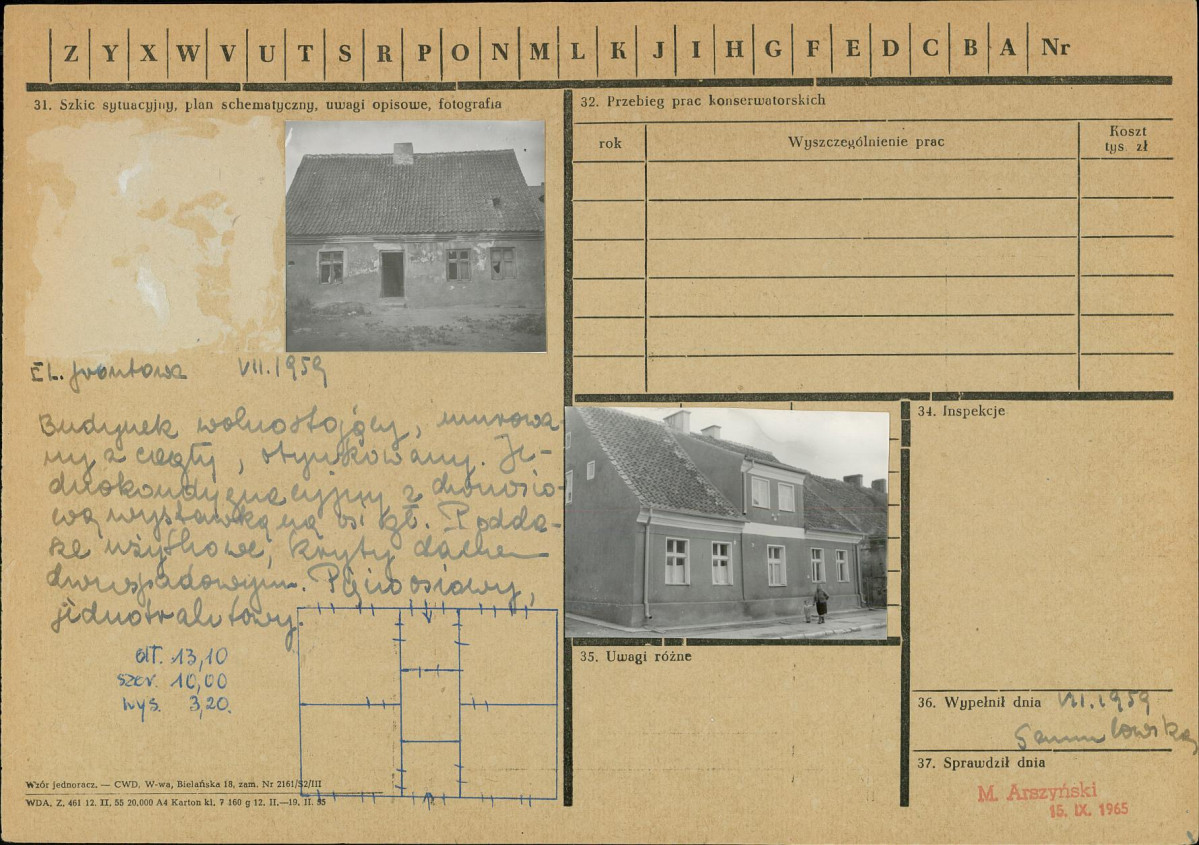 Z Y X W V U T S R P O N M L K J I H G F E D C B A Nr
31. Szkic sytuacyjny, plan schematyczny, uwagi opisowe, fotografia
El. frontowa VII.1959
Budynek wolnostojący, murowa-
ny z cegły, otynkowany. Je-
dnokondygnacyjny z dwuosio-
wą wystawką na osi gł. Podda-
sze użytkowe, kryty dachem
dwuspadowym. Pięcioosiowy,
jednotraktowy.
dł. 13,10
szer. 10,00
wys. 3,20.
Wzór jednoracz. — CWD, W-wa, Bielańska 18, zam. Nr 2161/52/III
WDA, Z, 461 12. II. 55 20.000 A4 Karton kl. 7 160 g 12. II.—19. II. 55
32. Przebieg prac konserwatorskich
rok
Wyszczególnienie prac
Koszt
tys. zł
34. Inspekcje
35. Uwagi różne
36. Wypełnił dnia VII.1959
37. Sprawdził dnia
M. Arszyński
15. IX. 1965